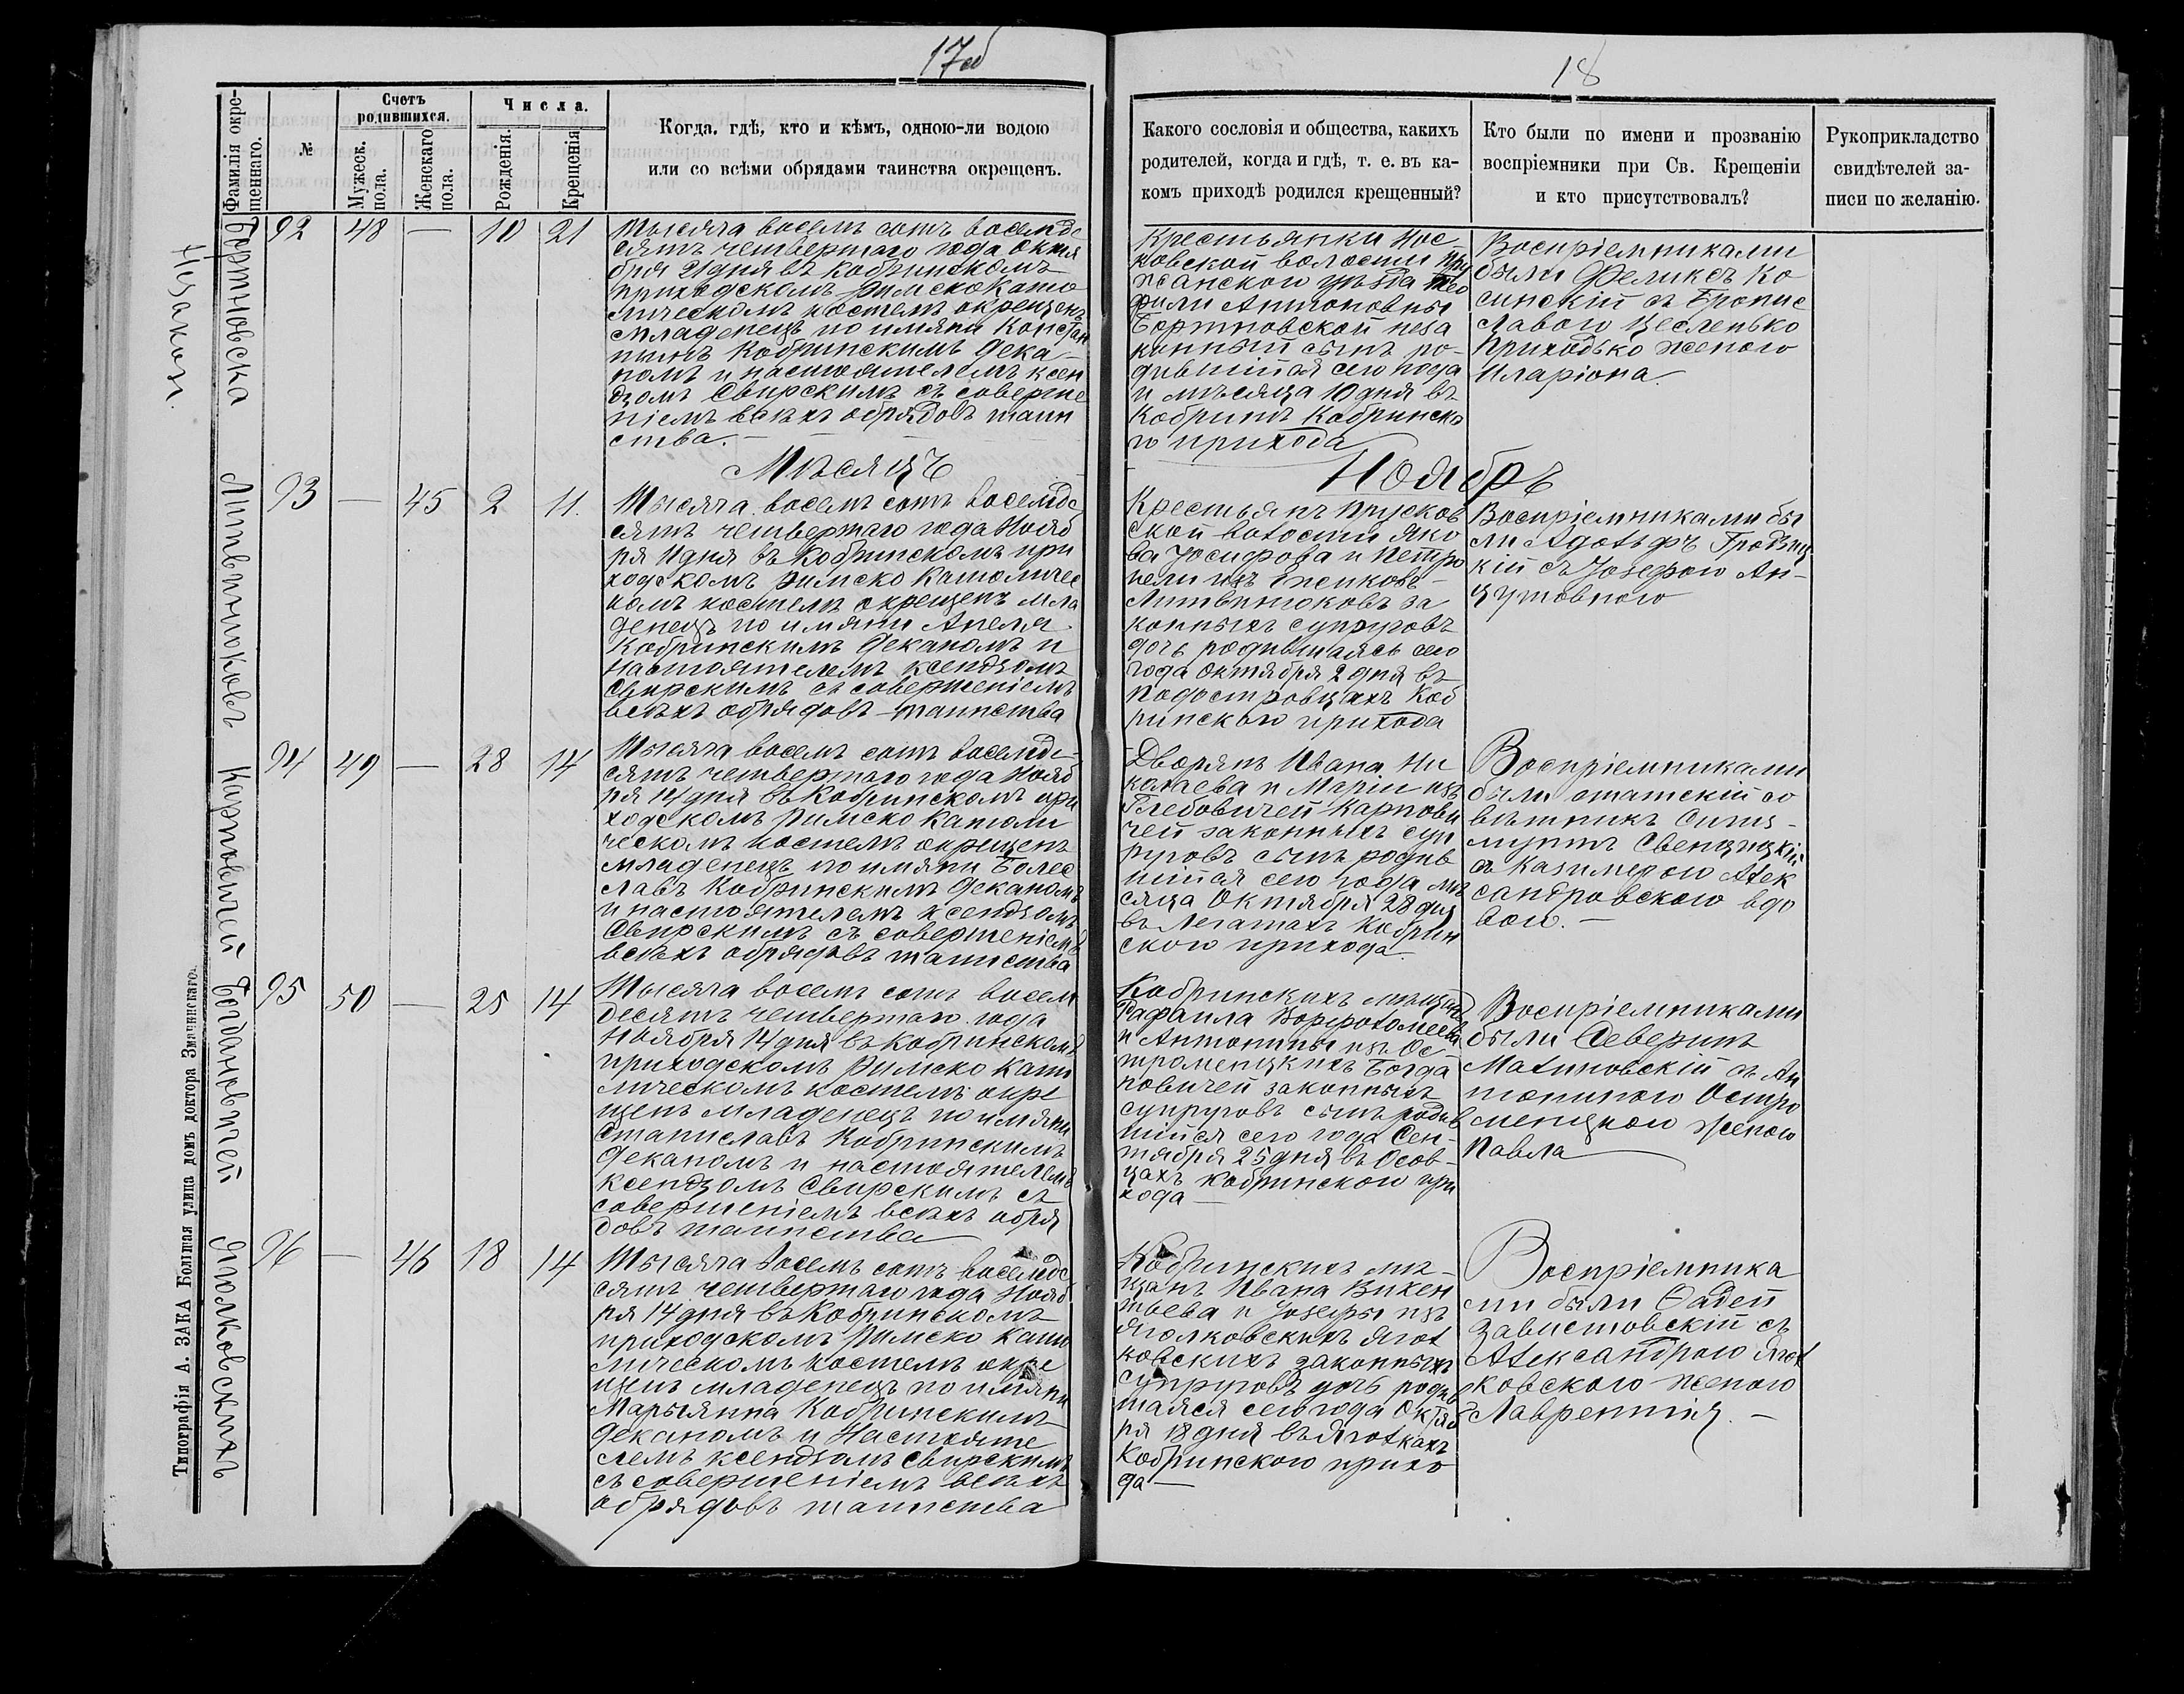 17об
18
Фамилія окре-
щеннаго.
№
Счетъ
родившихся.
Мужеск.
пола.
Женскаго
пола.
Числа.
Рожденія.
Крещенія
Когда, гдѣ, кто и кѣмъ, одною-ли водою
или со всѣми обрядами таинства окрещенъ.
Какого сословія и общества, какихъ
родителей, когда и гдѣ, т. е. въ ка-
комъ приходѣ родился крещенный?
Кто были по имени и прозванію
воспріемники при Св. Крещеніи
и кто присутствовалъ?
Рукоприкладство
свидѣтелей за-
писи по желанію.
Незакон.
Бортновска
92 48 — 10 21
Тысяча восемъ сотъ восемде
сятъ четвертаго года Октя
бря 21 дня въ Кобринскомъ
приходскомъ Римско Като
лическомъ костелѣ окрещенъ
младенецъ по имяни Констан
Кобринскимъ Дека-
номъ и настоятелемъ ксен
дзомъ Свирскимъ съ соверше
ніемъ всѣхъ обрядовъ таин
ства. —
Крестьянки Нос-
ковской волости Пру
жанскои уѣзда Тео
фили Антоновны
Бортновской неза
конный сынъ ро-
дившійся сего года
и мѣсяца 10 дня въ
Кобринѣ Кобринска
го прихода
Воспріемниками
были Феликсъ Ко
синскій съ Бронис
лавою Цесленько
Приходько женою
Иларіона.
Мѣсяцъ
Ноябрь
Литвинюковъ
93 — 45 2 11.
Тысяча восемъ сотъ восемде
сятъ четвертаго года Нояб
ря 11 дня въ Кобринскомъ при
ходскомъ Римско Католичес
комъ костелѣ окрещенъ мла
денецъ по имяни Анеля
Кобринскимъ Деканомъ и
настоятелемъ ксендзомъ
Свирскимъ съ совершеніемъ
всѣхъ обрядовъ — таинства
Крестьянъ Прусков
ской волости Яко
ва Іосифова и Петро
нели изъ
Литвинюковъ за
конныхъ супруговъ
дочь родившаясь сего
года Октября 2 дня въ
Подостровцахъ Коб
ринскаго прихода
Воспріемниками бы
ли Адольфъ Гродзиц
кій съ Іозефою Ан-
цутовною
Карповичей
94 49 — 28 14
Тысяча восемъ сотъ восемде-
сятъ четвертаго года Нояб
ря 14 дня въ Кобринскомъ при
ходскомъ Римско Католи
ческомъ костелѣ окрещенъ
младенецъ по имяни Болес
лавъ Кобринскимъ Деканомъ
и настоятелемъ ксендзомъ
Свирскимъ съ совершеніемъ
всѣхъ обрядовъ таинства
Дворянъ Ивана Ни
колаева и Маріи изъ
Глебовичей Карпови
чей законныхъ суп
руговъ сынъ родив
шійся сего года мѣ
сяца Октября 28 дня
въ Легатахъ Кобрин
ского прихода
Воспріемниками
были статскій со
вѣтникъ Сигиз-
мунтъ Свенцицкій
съ Казимерою Алек
сандровскою вдо
вою. —
Богдановичей
95 50 — 25 14
Тысяча восемъ сотъ восем
десятъ четвертаго года
Ноября 14 дня въ Кобринскомъ
приходскомъ Римско Като
лическомъ костелѣ окре
щенъ младенецъ по имяни
Станиславъ Кобринскимъ
деканомъ и настоятелемъ
ксендзомъ Свирскимъ съ
совершеніемъ всѣхъ обря
довъ таинства
Кобринскихъ мѣщанъ
Рафаила Ворфоломеева
и Антонины изъ Ос-
тромецкихъ Богда
новичей законныхъ
супруговъ сынъ родив
шійся сего года Сен-
тября 25 дня въ Осов-
цахъ Кобринского при
хода —
Воспріемниками
были Северинъ
Малиновскій съ Ан
тониною Остро
мецкою женою
Павла
Яголковскихъ
96 — 46 18 14
Тысяча восемъ сотъ восемде
сятъ четвертаго года Нояб
ря 14 дня въ Кобринскомъ
приходскомъ Римско Като
лическомъ костелѣ окре
щенъ младенецъ по имяни
Марыянна Кобринскимъ
деканомъ и Настояте
лемъ ксендзомъ Свирскимъ
съ совершеніемъ всѣхъ
обрядовъ таинства
Кобринскихъ мѣ-
щанъ Ивана Викен
тьева и Іозефы изъ
Яголковскихъ Ягол
ковскихъ законныхъ
супруговъ дочь родив
шаяся сего года Октяб
ря 18 дня въ Яголкахъ
Кобринского прихо
да —
Воспріемника
ми были Фадей
Завистовскій съ
Александрою Ягол
ковскою женою
Лаврентія. —
Типографія А. ЗАКА Большая улица домъ доктора Змачинскаго.